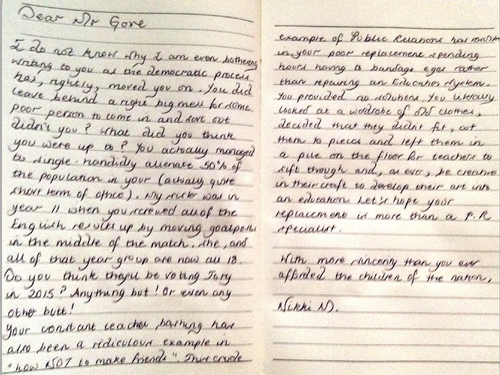 Dear Mr Gove
I do not know why I am even bothering
writing to you as the democratic process
has, rightly, moved you on. You did
leave behind a right big mess for some
poor person to come in and sort out
didn't you? What did you think
you were up to? You actually managed
to single-handidly alienate 50% of
the population in your (actually quite
short term of office). My sister was in
year 11 when you screwed all of the
English results up by moving goalposts
in the middle of the match. She, and
all of that year group are now all 18.
Do you think they'll be voting Tory
in 2015? Anything but! Or even any
other butt!
Your constant teacher bashing has
also been a ridiculous example in
"how NOT to make friends". This crude
example of Public Relations has
in your poor replacement spending
hours having to bandage egos rather
than repairing an Education System.
You provided no solutions. You literally
looked at a wardrobe of old clothes,
decided that they didn't fit, cut
them to pieces and left them in
a pile on the floor for teachers to
sift through and, as ever, be creative
in their craft to develop their art into
an education. Let's hope your
replacement is more than a P.R
specialist.
With more sincerity than you ever
afforded the children of the nation,
Nikki N.